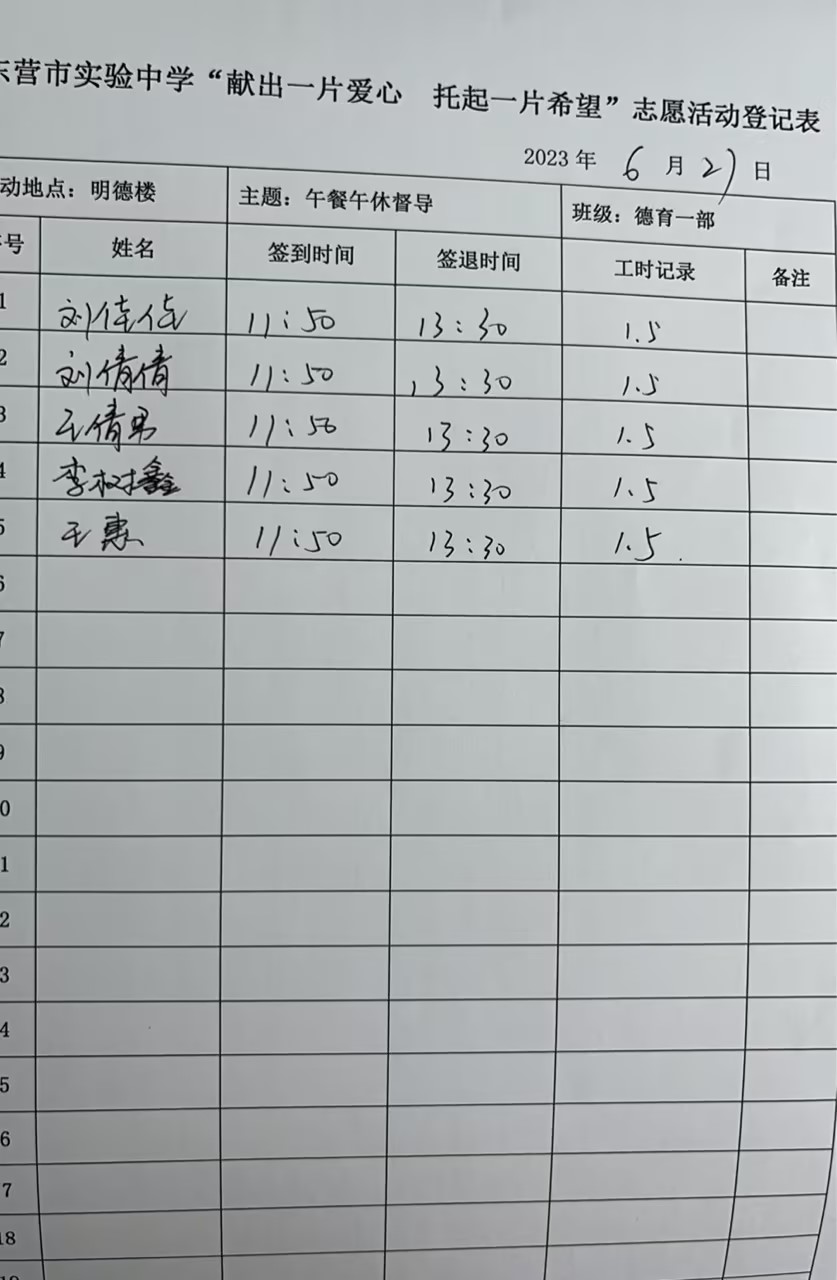 东营市实验中学“献出一片爱心 托起一片希望”志愿活动登记表
2023 年 6 月 27 日
动地点：明德楼 主题：午餐午休督导 班级：德育一部
号 姓名 签到时间 签退时间 工时记录 备注
1 刘佳佳 11:50 13:30 1.5
2 刘倩倩 11:50 13:30 1.5
3 王倩男 11:50 13:30 1.5
4 李树鑫 11:50 13:30 1.5
5 王惠 11:50 13:30 1.5
6
7
8
9
0
1
2
3
4
5
6
7
18
19